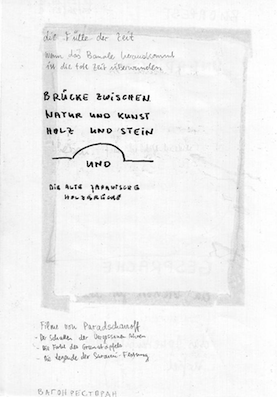 die Fülle der Zeit
wenn das Banale
ist die Zeit überwunden
BRÜCKE ZWISCHEN
NATUR UND KUNST
HOLZ UND STEIN
UND
DIE ALTE JAPANISCHE
HOLZBRÜCKE
Filme von Paradschanoff
- Der Schatten der Vergessenen Ahnen
- Die Farbe des Granatapfels
- Die Legende der Surami-Festung
ВАГОН РЕСТОРАН